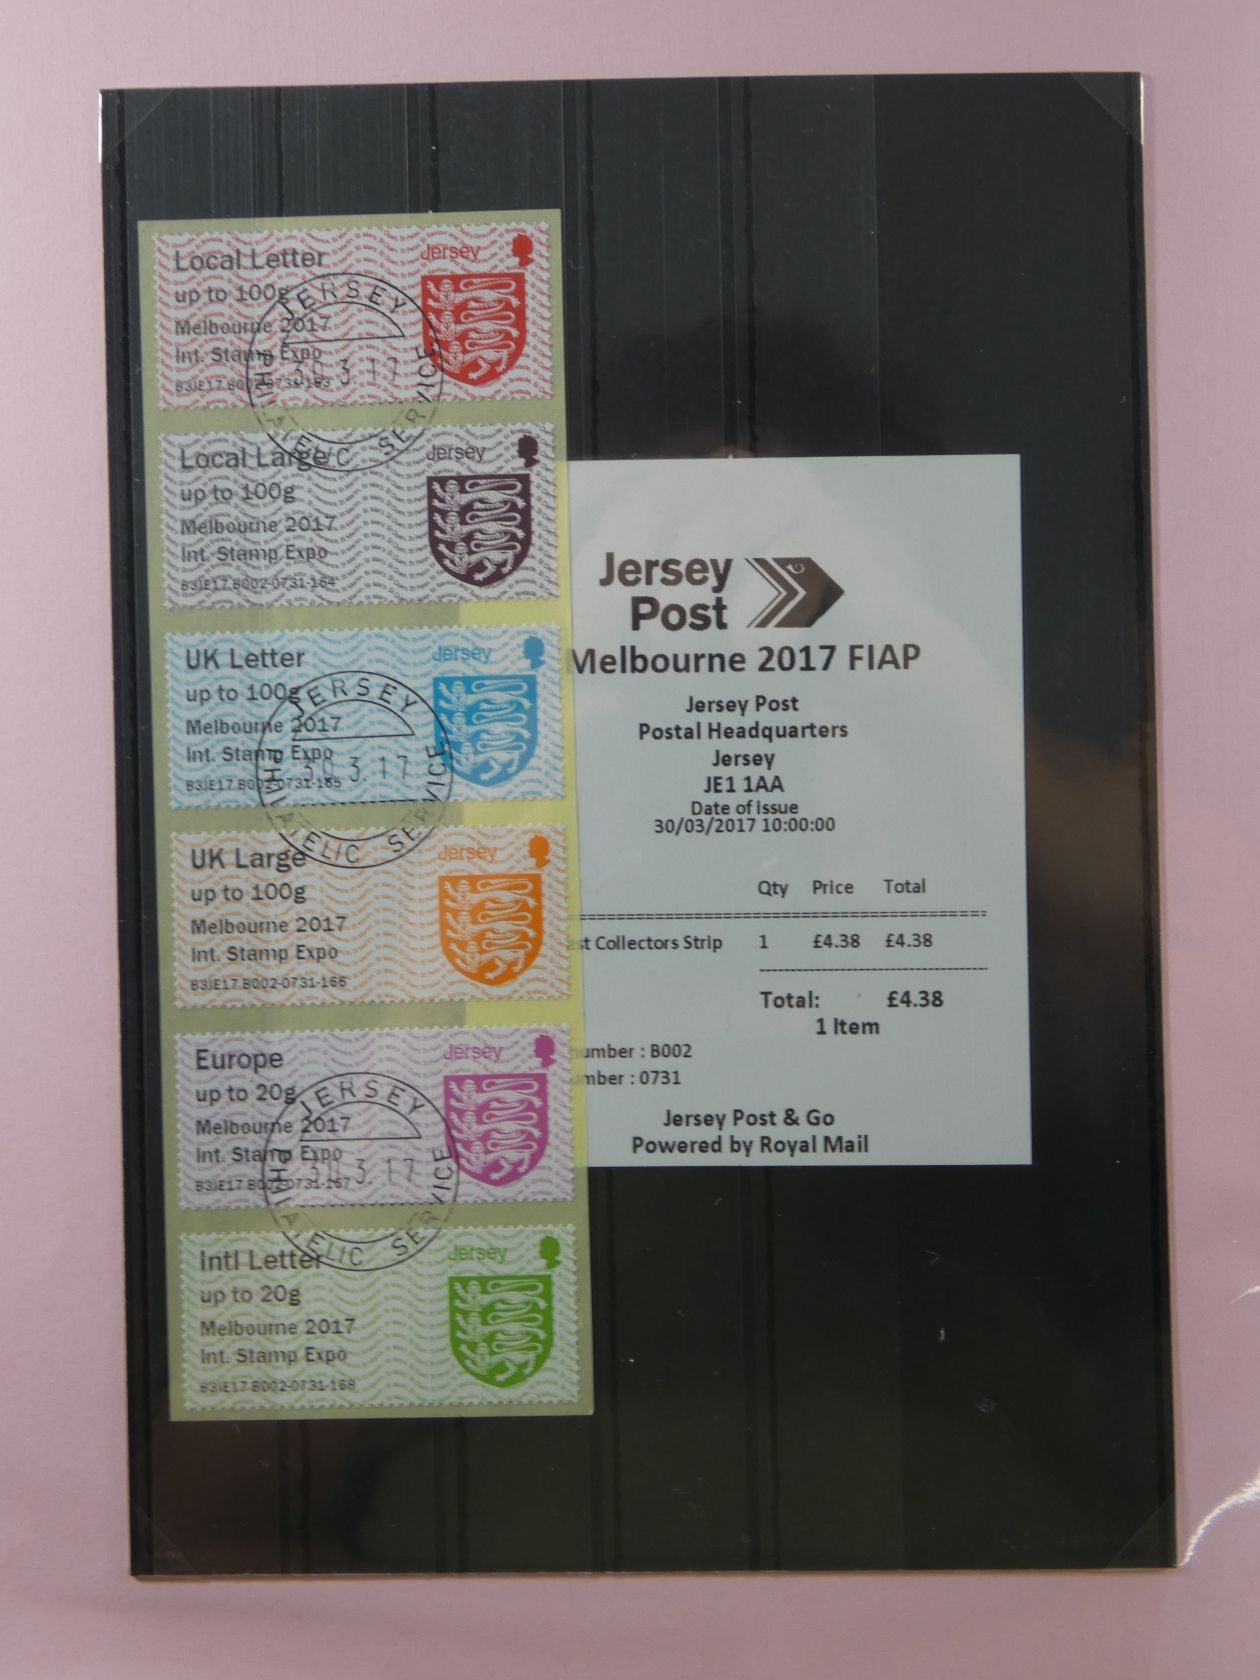 Local Letter
up to 100g
Melbourne 2017
Int. Stamp Expo
B3JE17 B002-0731-163
Jersey
JERSEY
30.3.17
PHILATELIC SERVICE
Local Large
up to 100g
Melbourne 2017
Int. Stamp Expo
B3JE17 B002-0731-164
Jersey
UK Letter
up to 100g
Melbourne 2017
Int. Stamp Expo
B3JE17 B002-0731-165
Jersey
JERSEY
30.3.17
PHILATELIC SERVICE
UK Large
up to 100g
Melbourne 2017
Int. Stamp Expo
B3JE17 B002-0731-166
Jersey
Europe
up to 20g
Melbourne 2017
Int. Stamp Expo
B3JE17 B002-0731-167
Jersey
JERSEY
30.3.17
PHILATELIC SERVICE
Intl Letter
up to 20g
Melbourne 2017
Int. Stamp Expo
B3JE17 B002-0731-168
Jersey
Jersey
Post
Melbourne 2017 FIAP
Jersey Post
Postal Headquarters
Jersey
JE1 1AA
Date of Issue
30/03/2017 10:00:00
Qty Price Total
Collectors Strip 1 £4.38 £4.38
Total: £4.38
1 Item
: B002
: 0731
Jersey Post & Go
Powered by Royal Mail